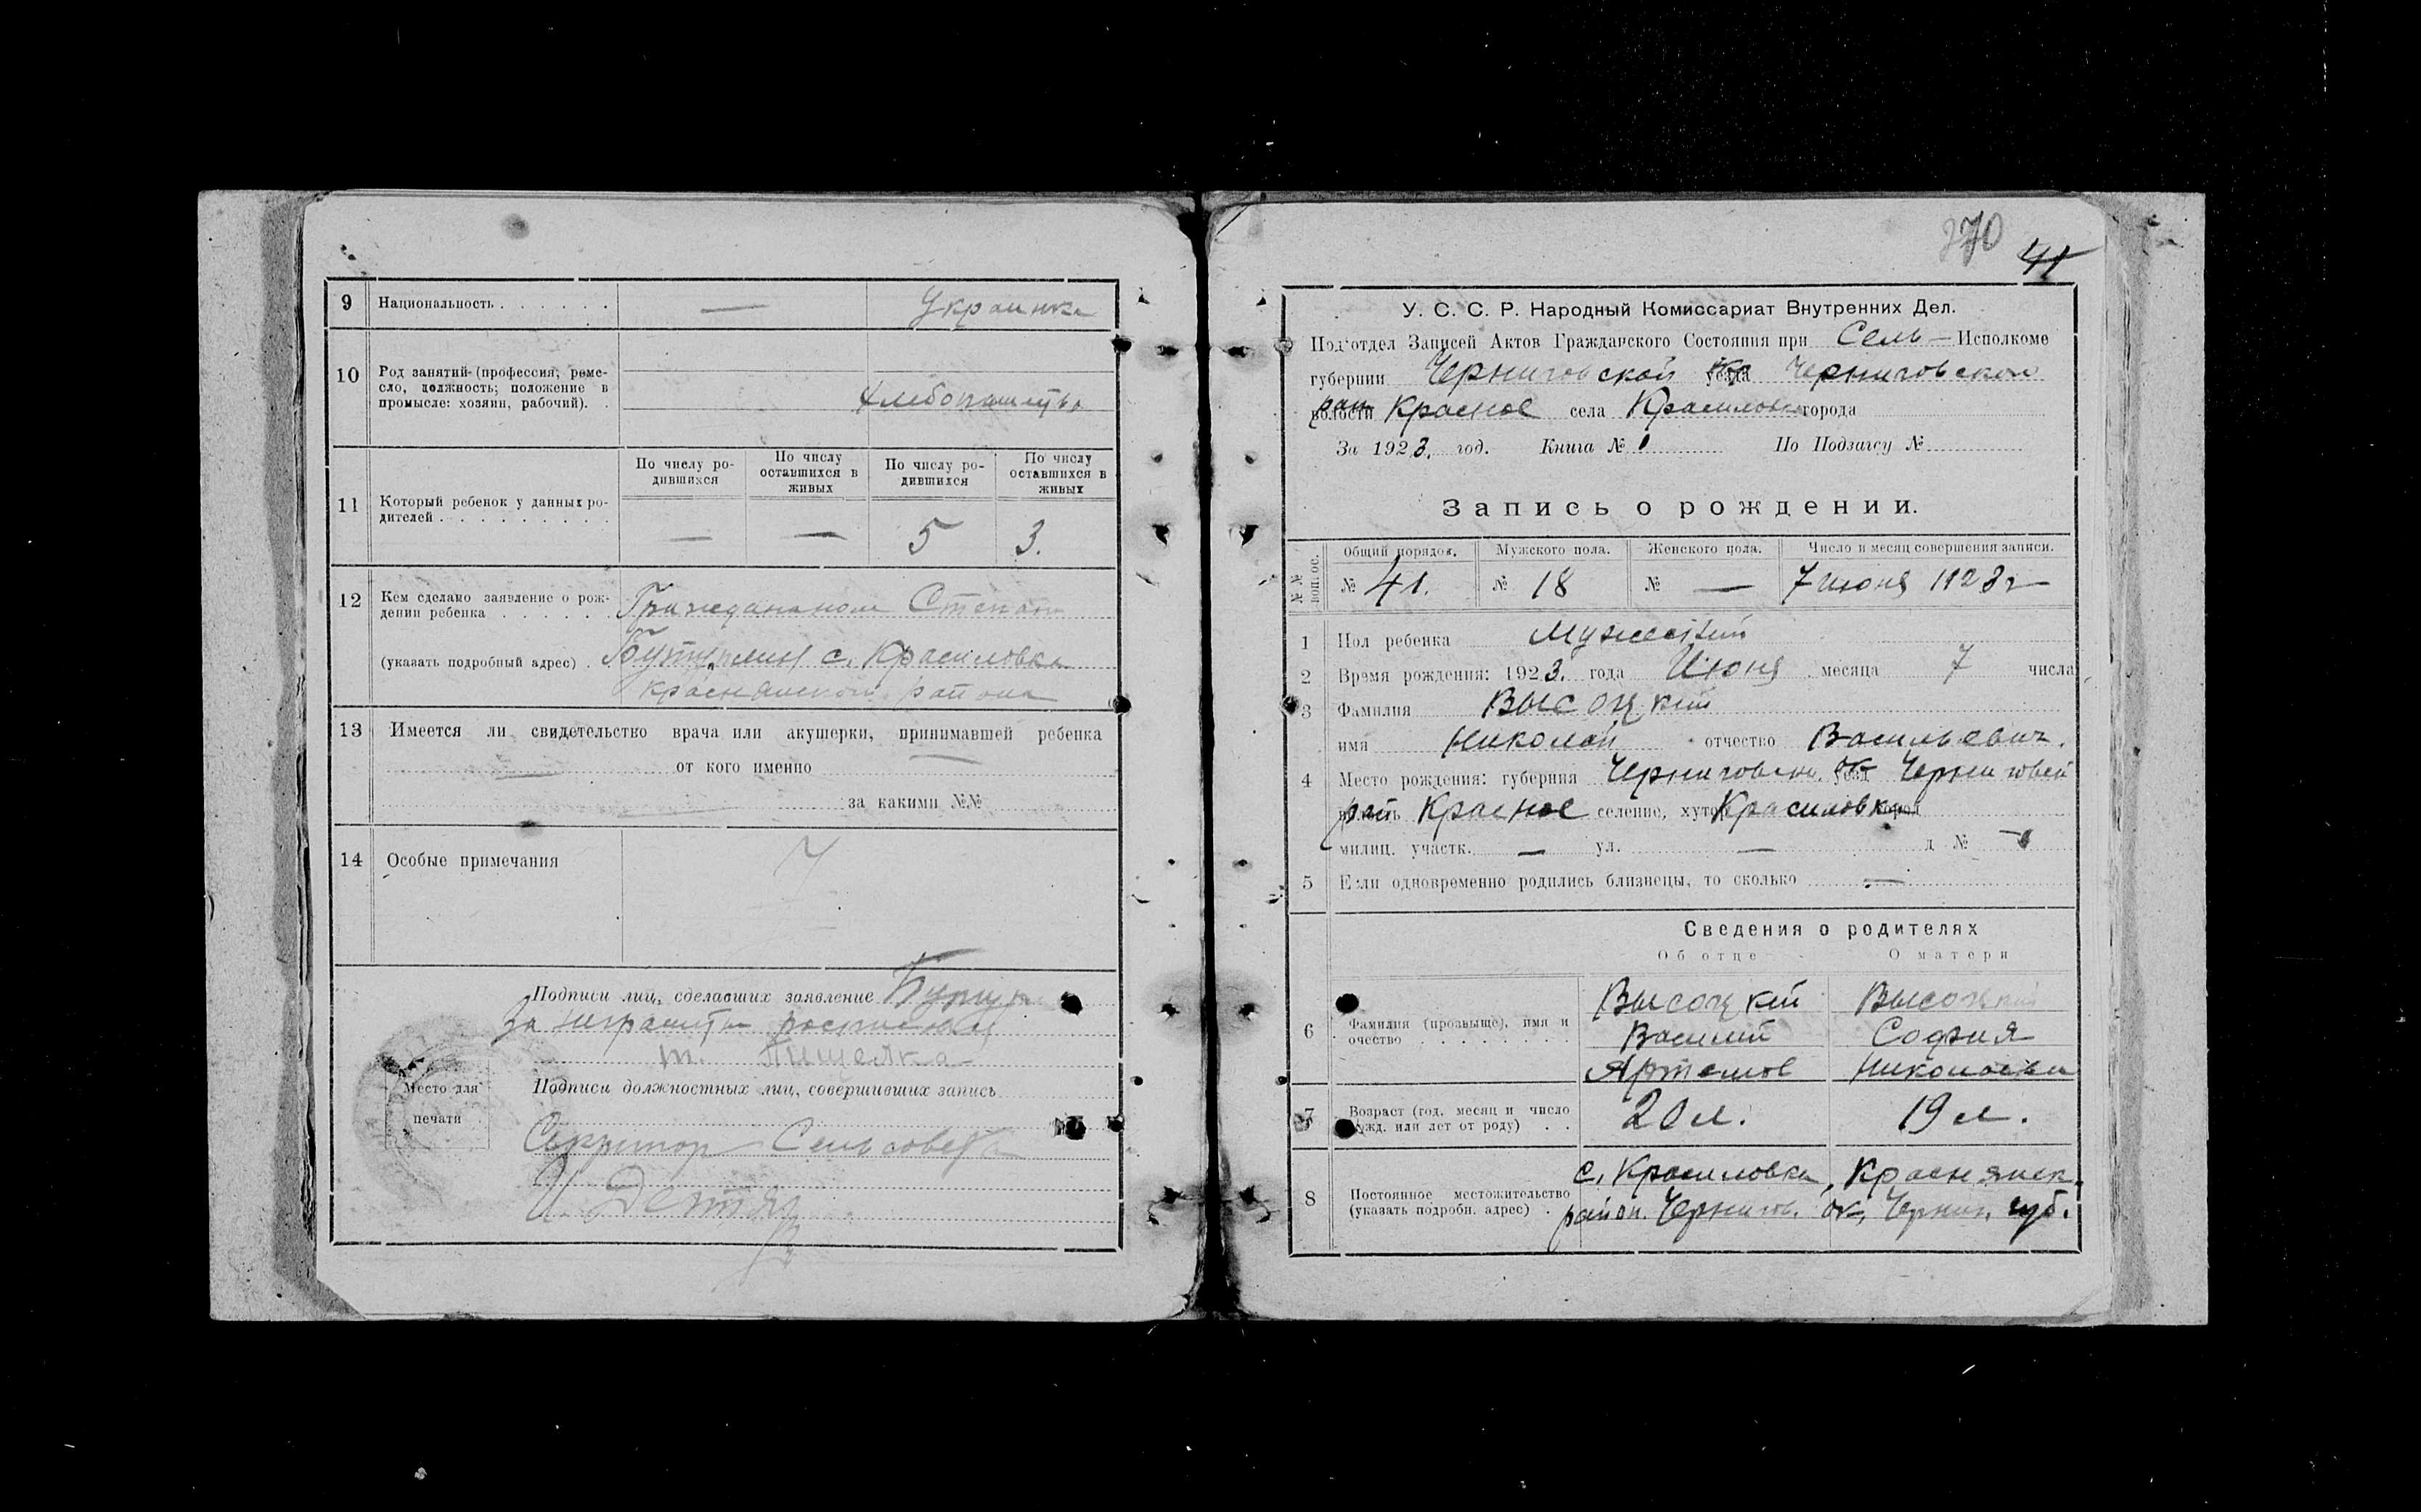 9 Национальность — Украинка
10 Род занятий (профессия, реме-
сло, должность; положение в
промысле: хозяин, рабочий). Хлебопашество
11 Который ребенок у данных ро-
дителей
По числу ро-
дившихся
По числу
оставшихся в
живых
По числу ро-
дившихся
По числу
оставшихся в
живых
— — 5 3.
12 Кем сделано заявление о рож-
дении ребенка Гражданином Степан
(указать подробный адрес) с. Красиловка
Краснянского района
13 Имеется ли свидетельство врача или акушерки, принимавшей ребенка —
— от кого именно
— за какими №№
14 Особые примечания
Подписи лиц, сделавших заявление
За
т.
Место для
печати
Подписи должностных лиц, совершивших запись
Секретарь Сельсовета
270
41
У. С. С. Р. Народный Комиссариат Внутренних Дел.
Под‘отдел Записей Актов Гражданского Состояния при Сель — Исполкоме
губернии Черниговской уезда Черниговской
волости рай Красное села Красиловка города
За 1923. год. Книга № 1 По Подзагсу №
Запись о рождении.
№№ воп.ос. Общий порядок. Мужского пола. Женского пола. Число и месяц совершения записи.
№ 41. № 18 № — 7 июня 1923 г
1 Пол ребенка Мужеский
2 Время рождения: 1923. года Июня месяца 7 числа
3 Фамилия Высоцкий
имя Николай отчество Васильевич.
4 Место рождения: губерния Черниговск. уезд ок Черниговск
волость рай Красное селение, хутор Красиловка город
милиц. участк. — ул. — д № —
5 Если одновременно родились близнецы, то сколько —
Сведения о родителях
Об отце О матери
6 Фамилия (прозвыще), имя и
очество
Высоцкий Высоцкий
Василий София
Артемов Николаевна
7 Возраст (год, месяц и число
рожд. или лет от роду) 20 л. 19 л.
8 Постоянное местожительство
(указать подробн. адрес)
с. Красиловка, Краснянск.
район. Чернигов. ок, Черниг. губ.